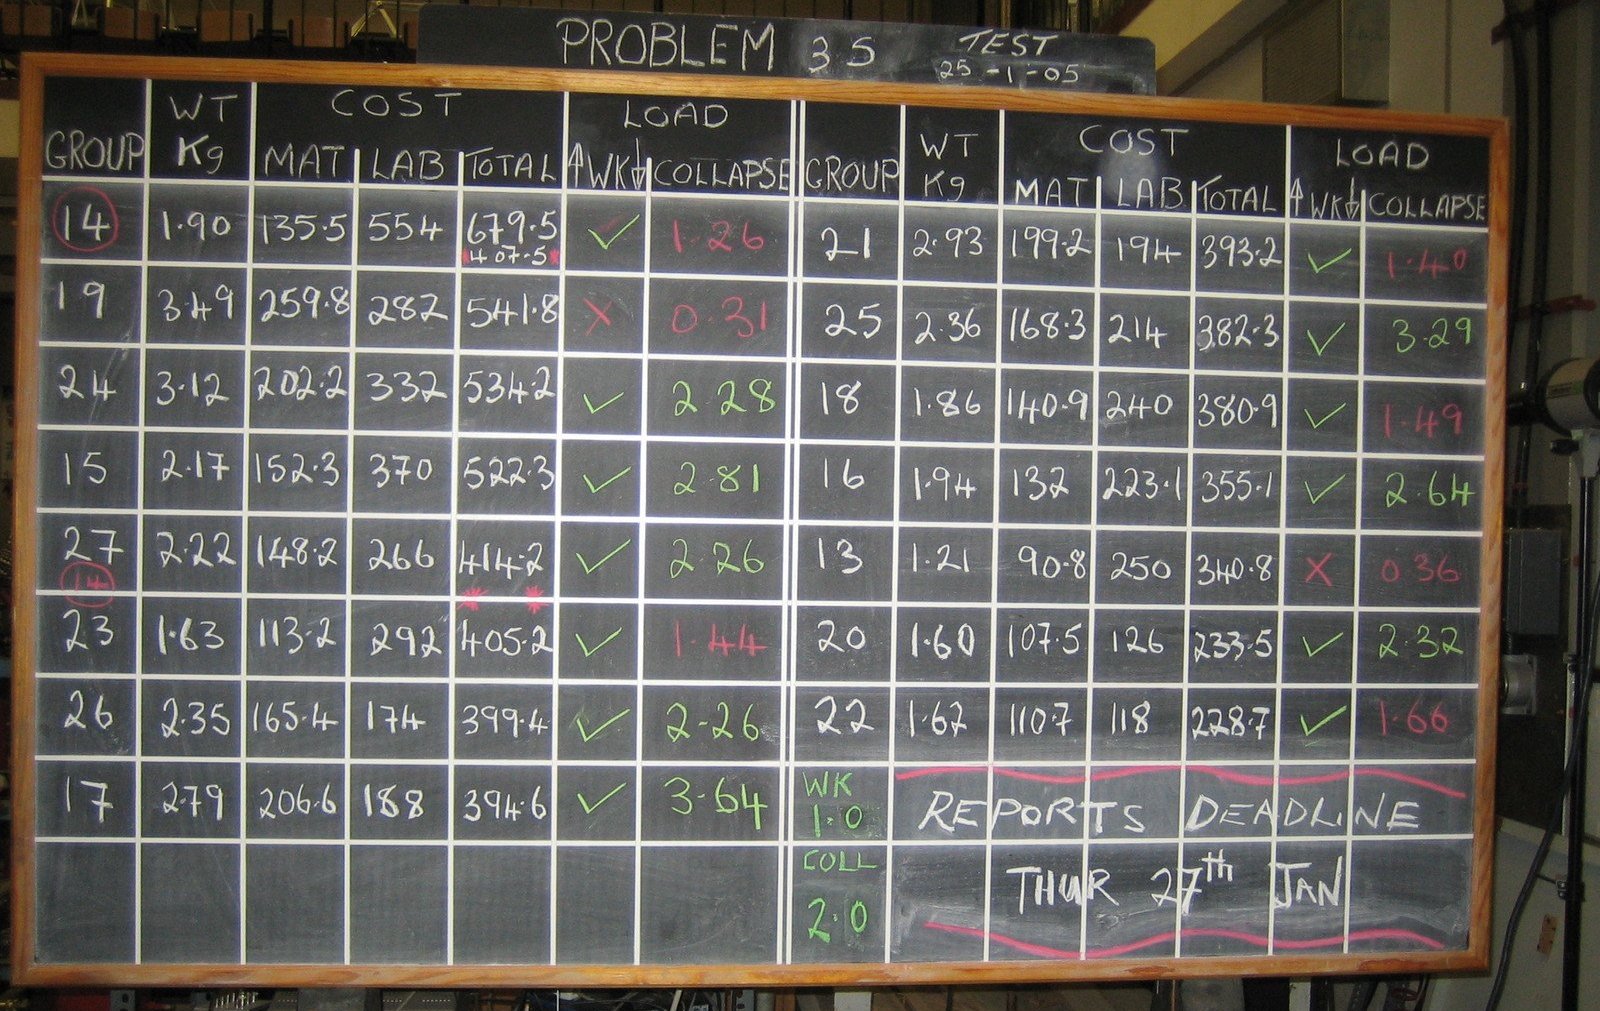 PROBLEM 3S TEST
25-1-05
GROUP WT Kg COST MAT LAB TOTAL LOAD ↑WK↓ COLLAPSE
14 1.90 135.5 554 679.5 ✓ 1.26
*407.5*
19 3.49 259.8 282 541.8 X 0.31
24 3.12 202.2 332 534.2 ✓ 2.28
15 2.17 152.3 370 522.3 ✓ 2.81
27 2.22 148.2 266 414.2 ✓ 2.26
14 * *
23 1.63 113.2 292 405.2 ✓ 1.44
26 2.35 165.4 174 399.4 ✓ 2.26
17 2.79 206.6 188 394.6 ✓ 3.64
GROUP WT Kg COST MAT LAB TOTAL LOAD ↑WK↓ COLLAPSE
21 2.93 199.2 194 393.2 ✓ 1.40
25 2.36 168.3 214 382.3 ✓ 3.29
18 1.86 140.9 240 380.9 ✓ 1.49
16 1.94 132 223.1 355.1 ✓ 2.64
13 1.21 90.8 250 340.8 X 0.36
20 1.60 107.5 126 233.5 ✓ 2.32
22 1.62 110.7 118 228.7 ✓ 1.66
WK
1.0
REPORTS DEADLINE
COLL
2.0
THUR 27th JAN